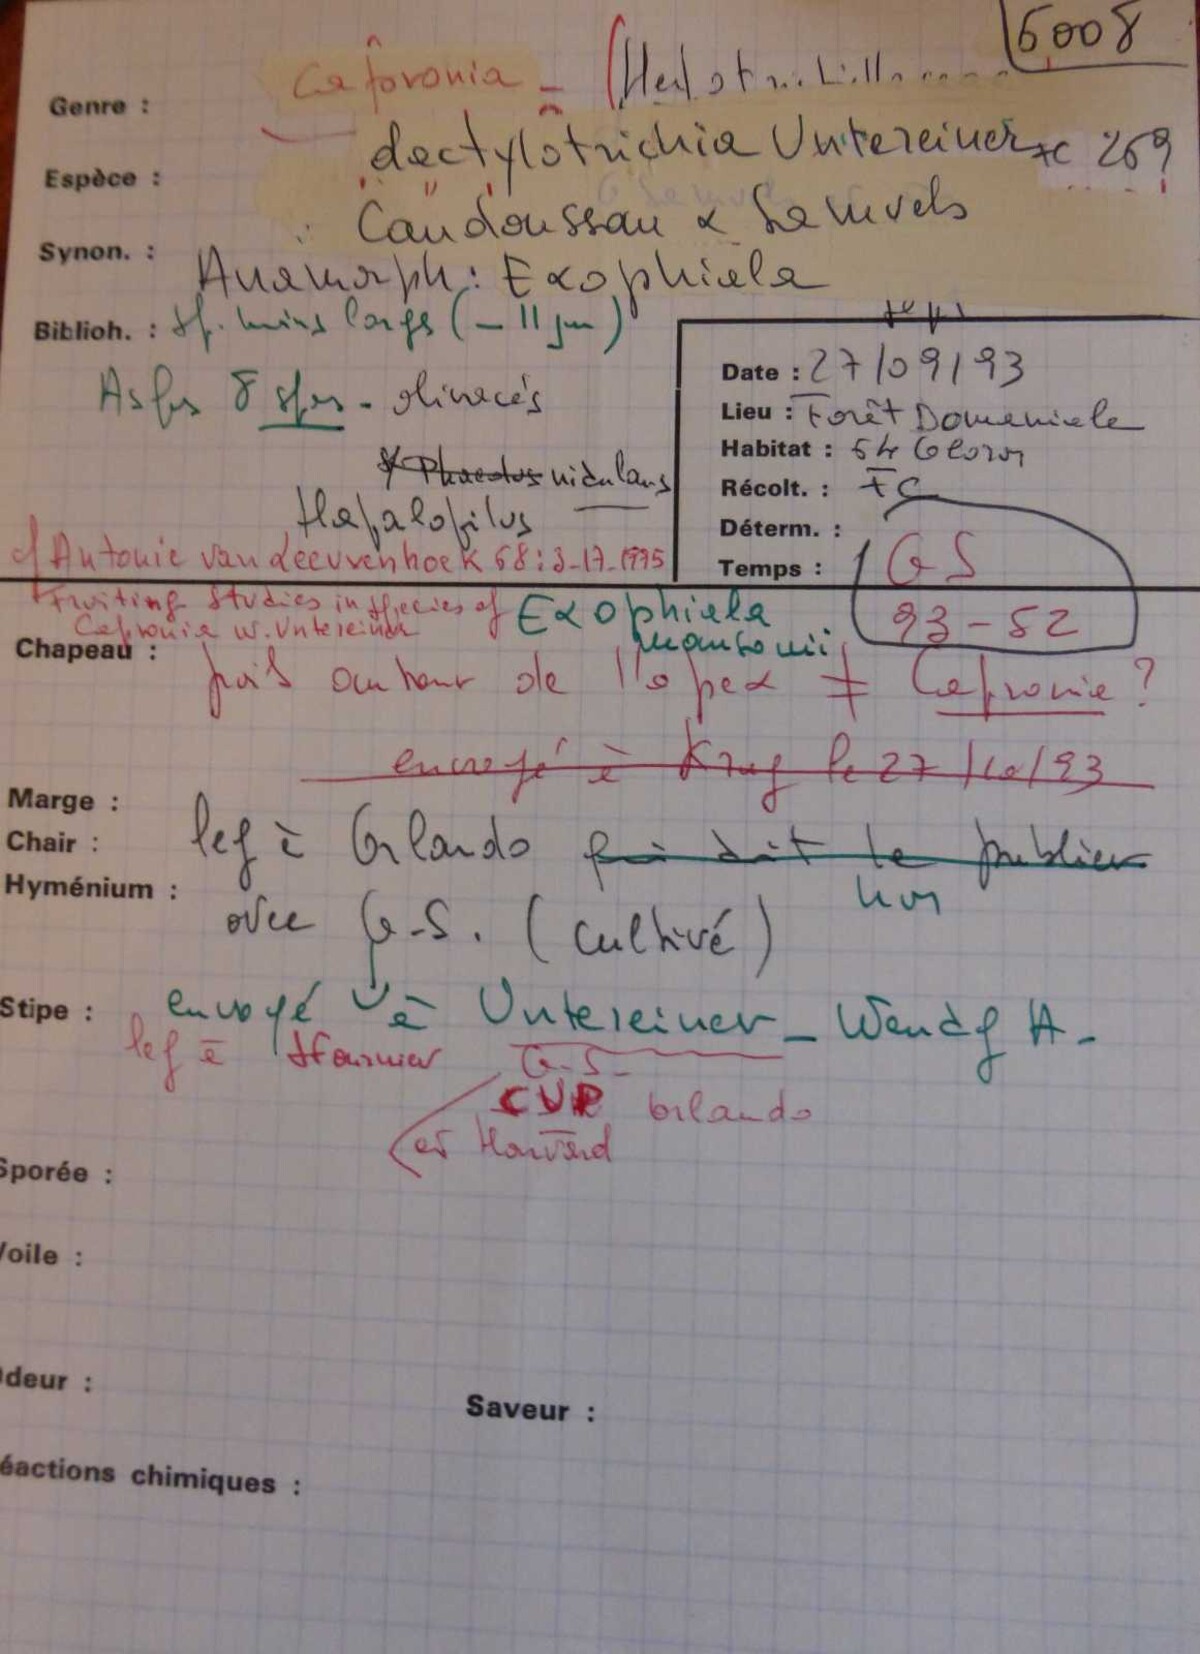 6008
Genre : Capronia - (Herpotrichiella
Espèce : dactylotrichia Untereiner FC 269
Candoussau & Samuels
Synon. : Anamorph: Exophiala
Biblioh. : sp. moins larges (-11 µm)
Asques 8 spes - olivacés
Date : 27/09/93
Lieu : Forêt Domaniale
Habitat : 64 Oloron
nidulans
Hapalopilus
Récolt. : FC
Déterm. :
Temps : GS
93-52
cf Antonie van Leeuvenhoek 68:3-17-1995
Fruiting Studies in species of
Capronia W. Untereiner
Exophiala
mansonii
Chapeau : poils autour de l'apex ≠ Capronia ?
envoyé à Krug le 27/10/93
Marge :
Chair : leg à Orlando qui doit le publier
non
Hyménium :
avec G.S. (cultivé)
Stipe : envoyé à Untereiner - Wendy A.
leg à G.S.
CUP Orlando
et Harvard
Sporée :
Voile :
Odeur :
Saveur :
éactions chimiques :